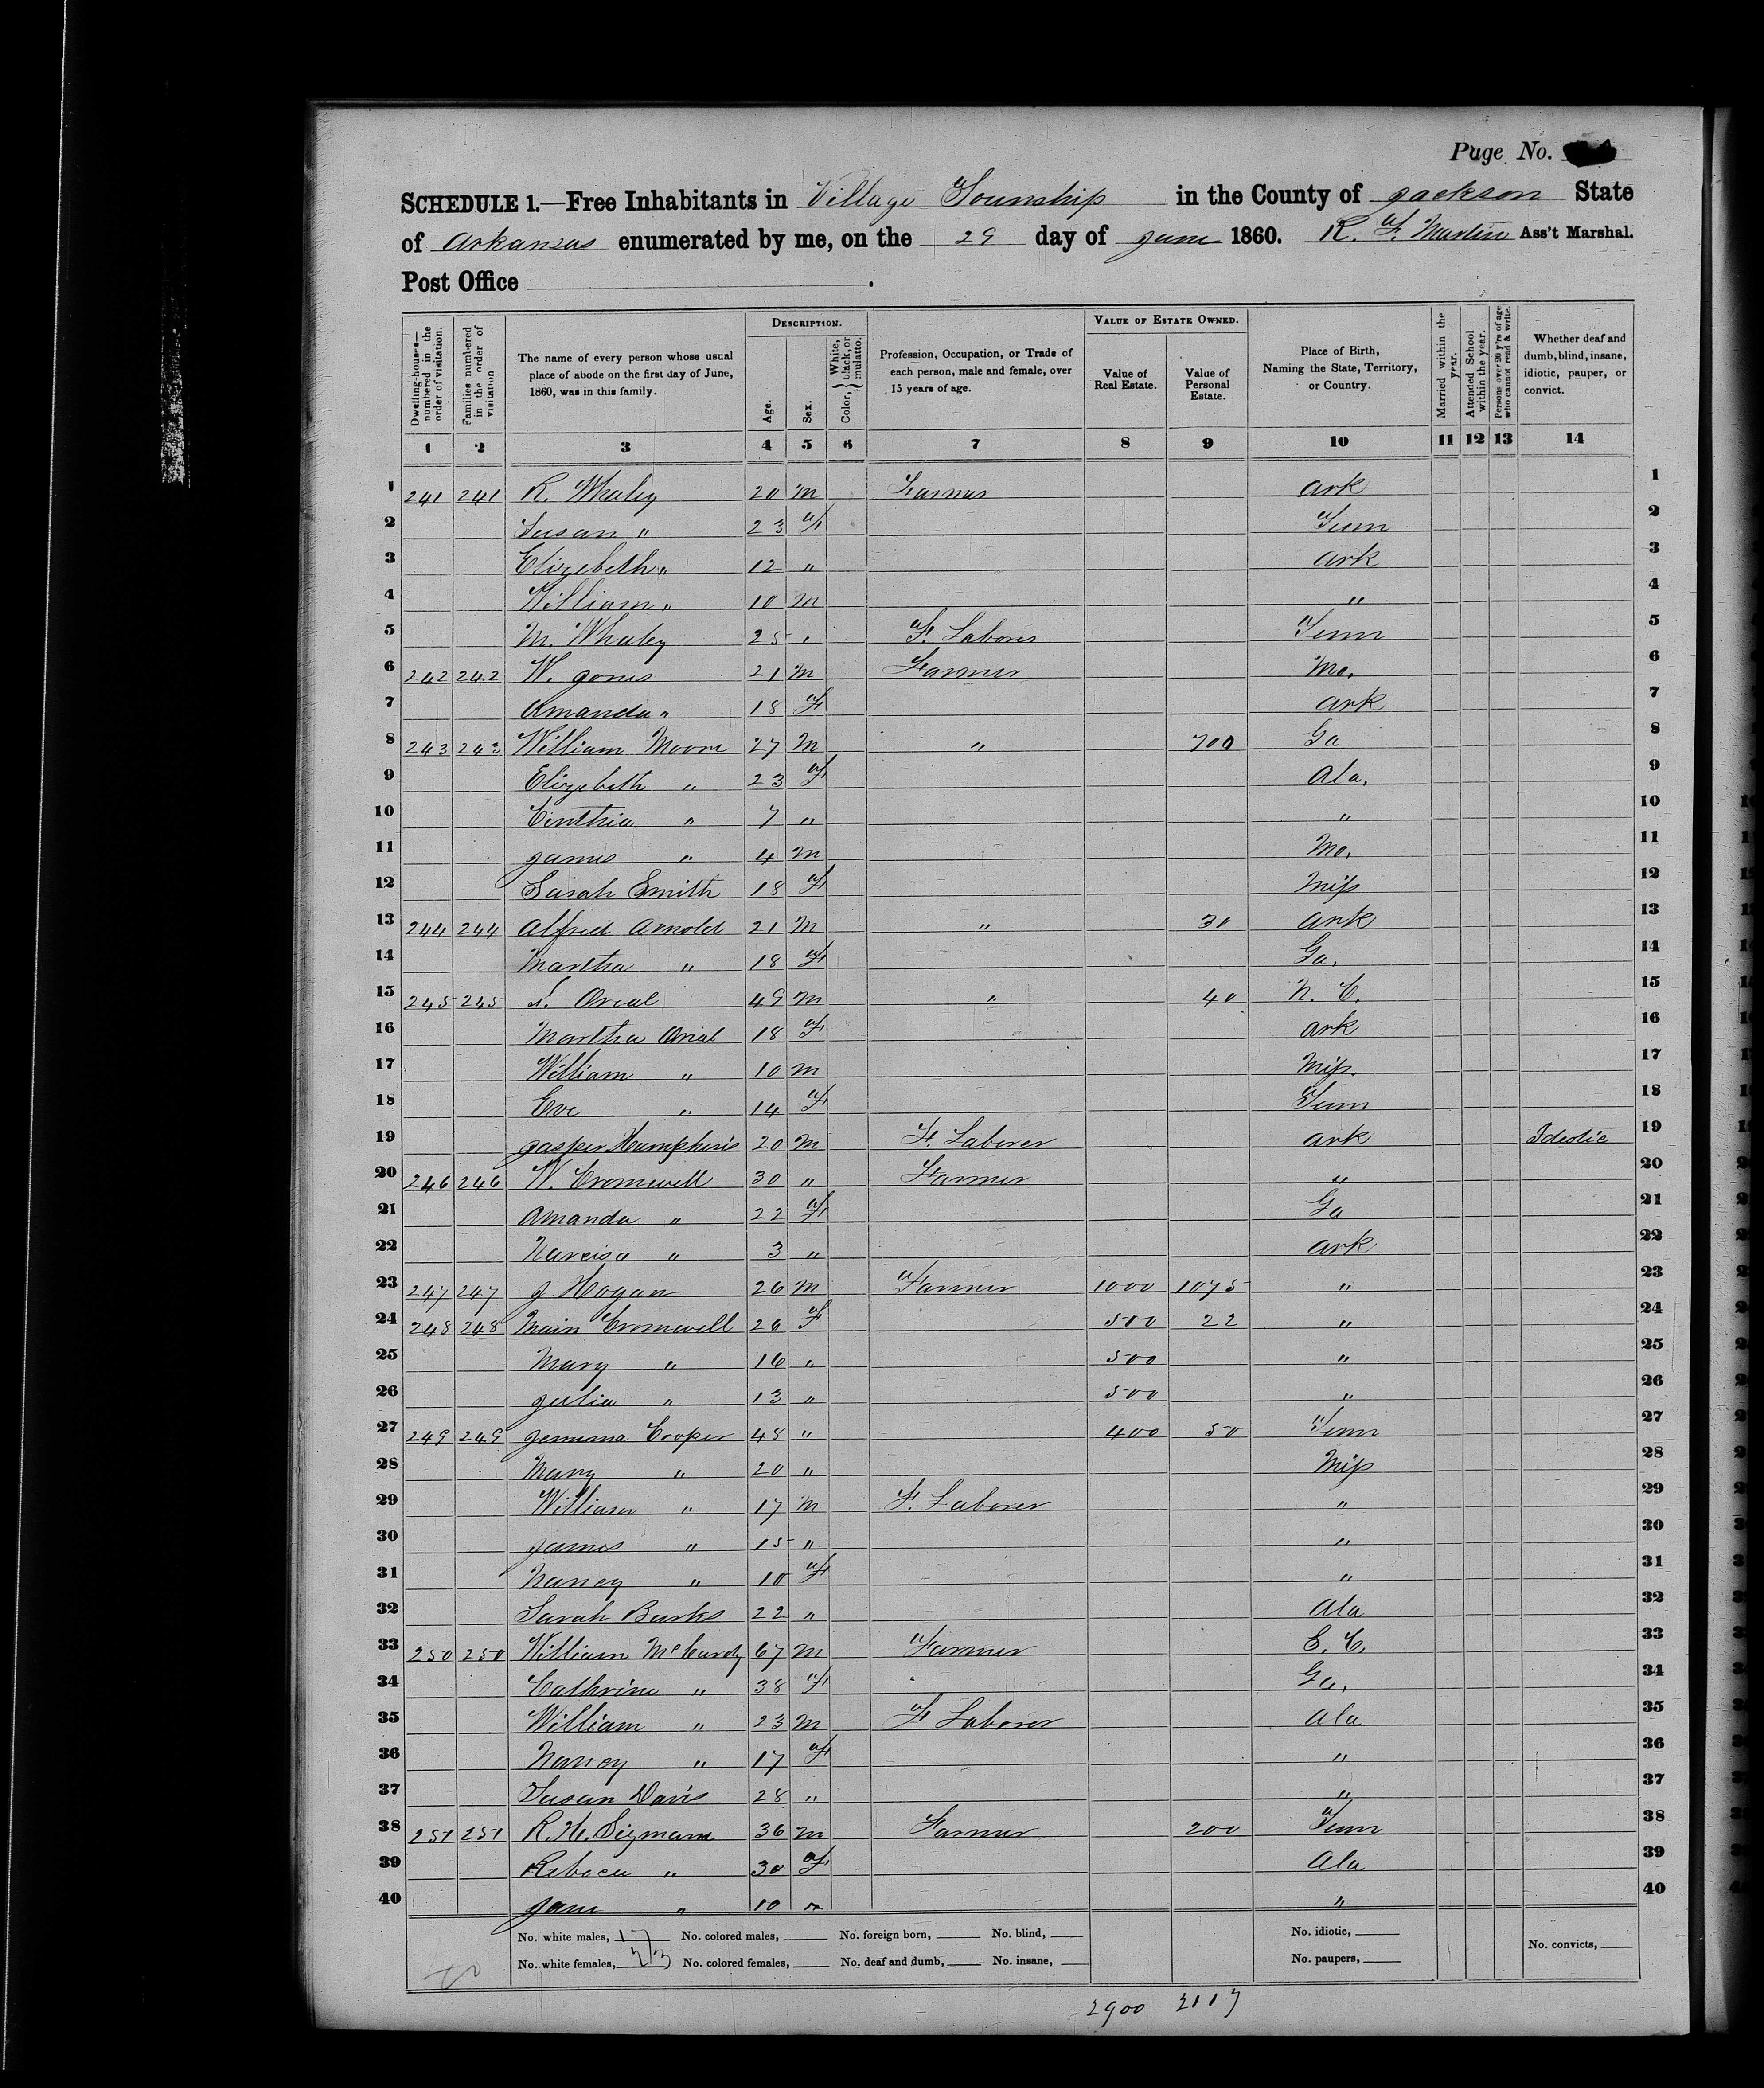 Page No.
SCHEDULE 1.—Free Inhabitants in Village Township in the County of Jackson State
of Arkansas enumerated by me, on the 29 day of June 1860. R. F. Martin Ass't Marshal.
Post Office
Dwelling-houses—numbered in the order of visitation. Families numbered in the order of visitation The name of every person whose usual place of abode on the first day of June, 1860, was in this family. DESCRIPTION. Age. Sex. Color, {White, black, or mulatto. Profession, Occupation, or Trade of each person, male and female, over 15 years of age. VALUE OF ESTATE OWNED. Value of Real Estate. Value of Personal Estate. Place of Birth, Naming the State, Territory, or Country. Married within the year. Attended School within the year. Persons over 20 y'rs of age who cannot read & write. Whether deaf and dumb, blind, insane, idiotic, pauper, or convict.
1 2 3 4 5 6 7 8 9 10 11 12 13 14
1 241 241 R. Whaley 20 M Farmer Ark 1
2 Susan " 23 F Tenn 2
3 Elizebeth " 12 " Ark 3
4 William " 10 M " 4
5 M. Whaley 25 " F. Laborer Tenn 5
6 242 242 W. Jones 21 M Farmer Mo. 6
7 Amanda " 18 F Ark 7
8 243 243 William Moore 27 M " 700 Ga 8
9 Elizebeth " 23 F Ala. 9
10 Cinthia " 7 " " 10
11 James " 4 M Mo. 11
12 Sarah Smith 18 F Miss 12
13 244 244 Alfred Arnold 21 M " 30 Ark 13
14 Martha " 18 F Ga. 14
15 245 245 Arial 49 M " 40 N. C. 15
16 Martha Arial 18 F Ark 16
17 William " 10 M Miss. 17
18 Eve " 14 F Tenn 18
19 Jasper Humpheris 20 M F. Laborer Ark Ideotic 19
20 246 246 W. Cromwell 30 " Farmer " 20
21 Amanda " 22 F Ga 21
22 Narcisa " 3 " Ark 22
23 247 247 J Hogan 26 M Farmer 1000 1075 " 23
24 248 248 Cromewell 26 F 500 22 " 24
25 Mary " 16 " 500 " 25
26 Julia " 13 " 500 " 26
27 249 249 Jemima Cooper 48 " 400 50 Tenn 27
28 Mary " 20 " Miss 28
29 William " 17 M F. Laborer " 29
30 James " 15 " " 30
31 Nancy " 10 F " 31
32 Sarah Burks 22 " Ala 32
33 250 250 William McCurdy 67 M Farmer S. C. 33
34 Cathrine " 38 F Ga. 34
35 William " 23 M F Laborer Ala 35
36 Nancy " 17 F " 36
37 Susan Davis 28 " " 37
38 251 251 R. H. Sigmam 36 M Farmer 200 Tenn 38
39 Rebeca " 30 F Ala 39
40 Jane " 10 " " 40
No. white males, 17 No. colored males, No. foreign born, No. blind, No. idiotic,
No. white females, 23 No. colored females, No. deaf and dumb, No. insane, No. paupers, No. convicts,
40
2900 2117